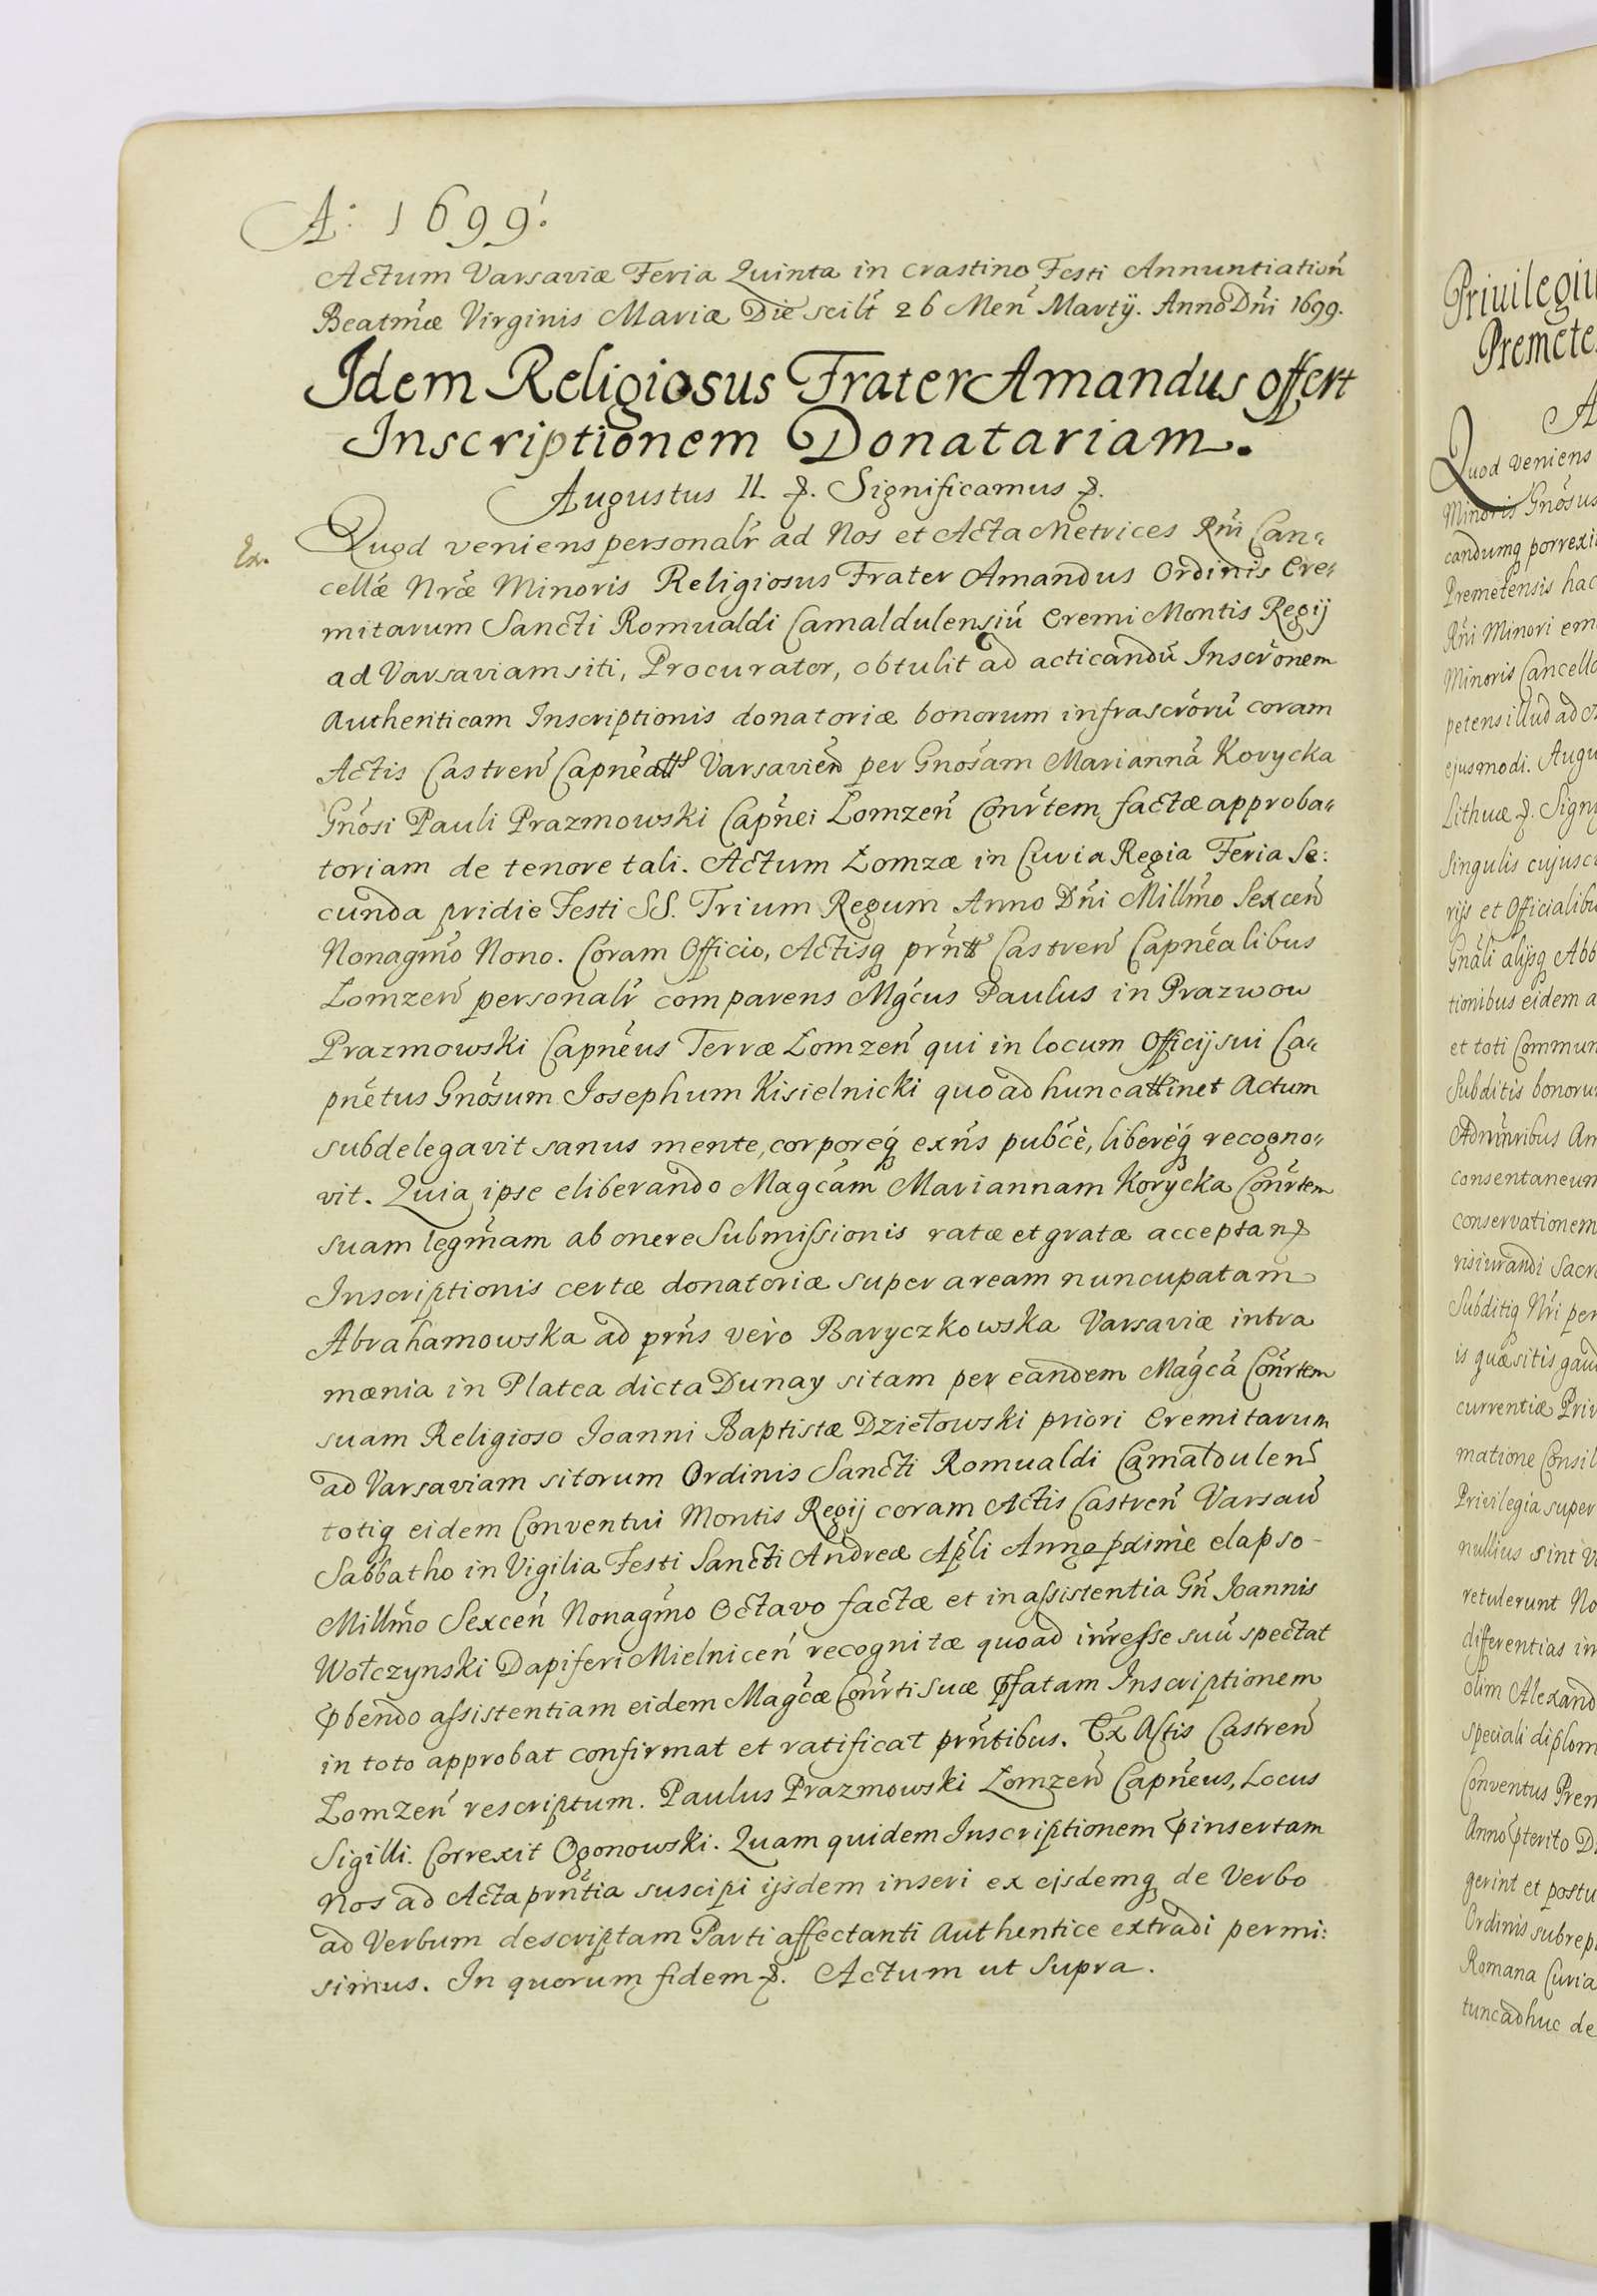 A: 1699.
Actum Varsaviæ Feria Quinta in crastino Festi Annuntiatioń
Beatm̃æ Virginis Mariæ Die scilt̃ 26 Meń Martij. Anno Dńi 1699.
Idem Religiosus Frater Amandus offert
Inscriptionem Donatariam.
Augustus II. &. Significamus &.
Ex.
Quod veniens personalr̃ ad Nos et Acta Metrices Rńi Can„
cellæ Nr̃æ Minoris Religiosus Frater Amandus Ordinis Ere„
mitarum Sancti Romualdi Camaldulensiũ Eremi Montis Regij
ad Varsaviam siti, Procurator, obtulit ad acticandũ Inscr̃onem
Authenticam Inscriptionis donatoriæ bonorum infrascr̃orũ coram
Actis Castreń Capneatt Varsavień per Gnosam Mariannã Korycka
Gnosi Pauli Prazmowski Capñei Łomzeń Conr̃tem factæ approba„
toriam de tenore tali. Actum Łomzæ in Curia Regia Feria Se:
cunda pridie Festi SS. Trium Regum Anno Dńi Millm̃o Sexceń
Nonagm̃o Nono. Coram Officio, Actisq̃ prñtt Castreń Capnealibus
Łomzeń personalr̃ comparens Mgcus Paulus in Prazwow
Prazmowski Capneus Terræ Łomzeń qui in locum Officij sui Ca„
pnetus Gnosum Josephum Kisielnicki quo ad hunc attinet Actum
subdelegavit sanus mente, corporeq̃ exñs pubcè, liberèq̃ recogno„
vit. Quia ipse eliberando Magcam Mariannam Korycka Conr̃tem
suam legm̃am ab onere Submissionis ratæ et gratæ acceptan&
Inscriptionis certæ donatoriæ super aream nuncupatam
Abrahamowska ad prñs vero Baryczkowska Varsaviæ intra
mænia in Platea dicta Dunay sitam per eandem Magcã Conr̃tem
suam Religioso Joanni Baptistæ Dziełowski priori Eremitarum
ad Varsaviam sitorum Ordinis Sancti Romualdi Camalduleń
totiq̃ eidem Conventui Montis Regij coram Actis Castreń Varsaw̃
Sabbatho in Vigilia Festi Sancti Andreæ Apłi Anno pximè elapso
Millm̃o Sexceń Nonagm̃o Octavo factæ et in assistentia Gñ Joannis
Wołczynski Dapiferi Mielniceń recognitæ quo ad inresse suũ spectat
pbendo assistentiam eidem Magcæ Conr̃ti suæ pfatam Inscriptionem
in toto approbat confirmat et ratificat prñtibus. Ex Actis Castreń
Łomzeń rescriptum. Paulus Prazmowski Łomzeń Capneus, Locus
Sigilli. Correxit Ogonowski. Quam quidem Inscriptionem pinsertam
Nos ad Acta prñtia suscipi ijsdem inseri ex eisdemq̃ de Verbo
ad Verbum descriptam Parti affectanti Authentice extradi permi:
simus. In quorum fidem &. Actum ut Supra.
Priuilegiu
Premete
A
Quod veniens
Minoris Gnosus
candumq̃ porrexi
Premetensis hac
Rńi Minori em
Minoris Cancella
petens illud ad
ejusmodi. Augu
Lithuæ &. Sign
Singulis cujusc
rijs et Officialibu
Gnali alijsq̃ Abb
tionibus eidem a
et toti Commun
Subditis bonoru
consentaneum
conservationem
risiurandi Sacr
Subditiq̃ Nr̃i per
is quæsitis gaud
currentiæ Priv
matione Consil
Privilegia super
nullius sint V
retulerunt No
differentias in
olim Alexand
speciali diplom
Conventus Prem
Anno pterito D
gerint et postu
Ordinis subrep
Romana Curia
tunc adhuc de